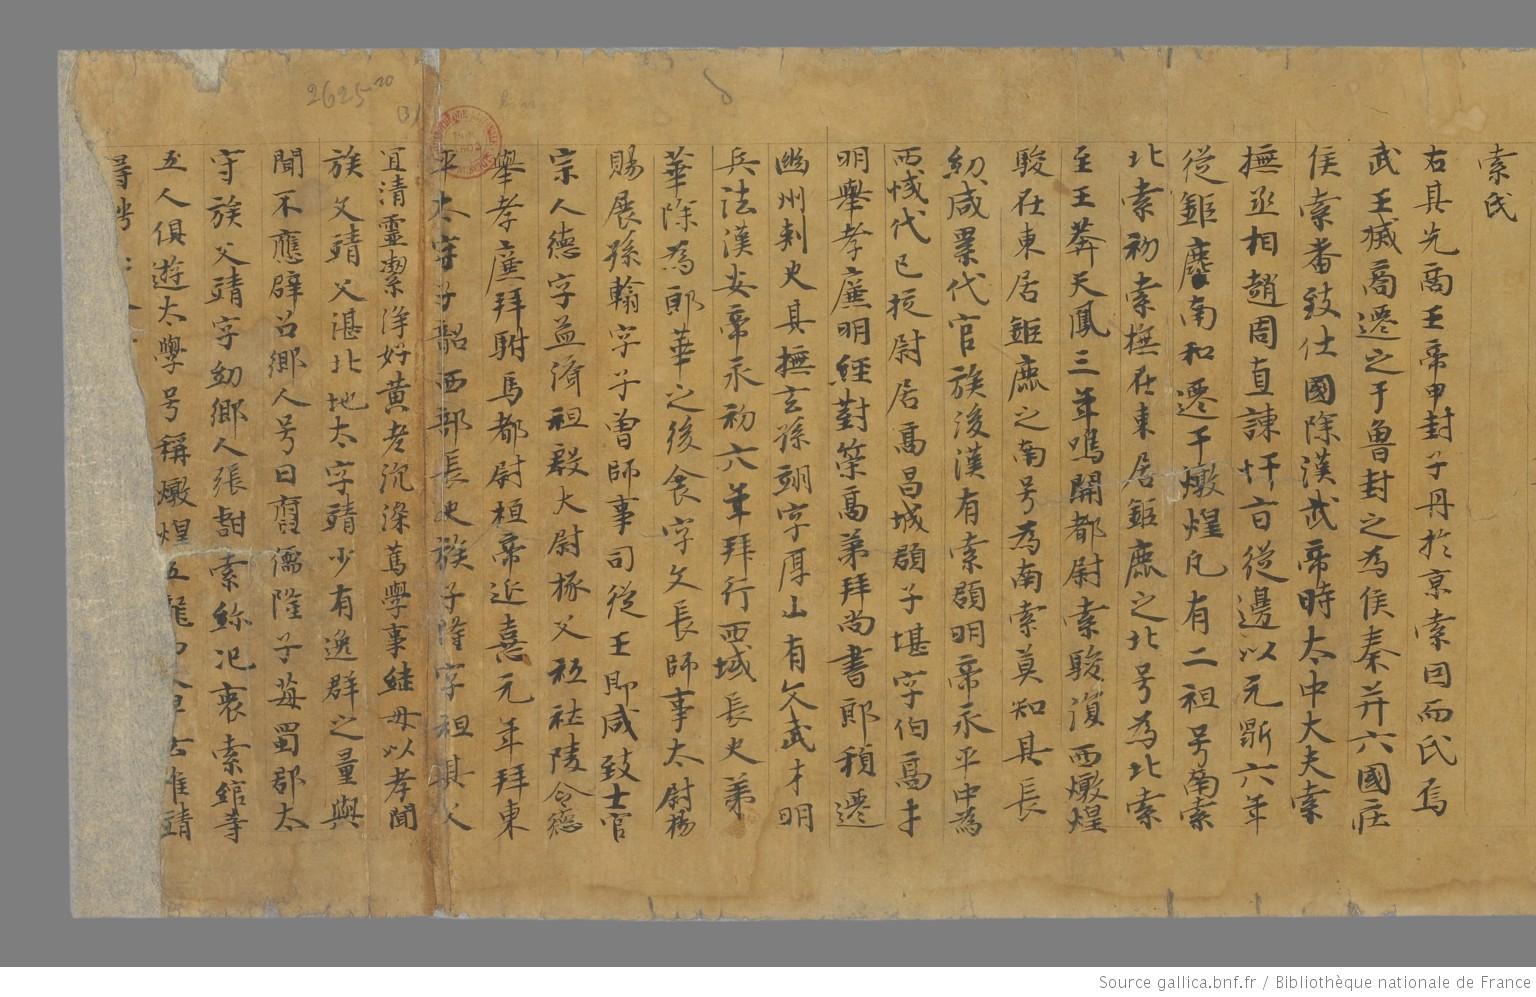 索氏
右其先商王帝甲封子丹於京索因而氏焉
武王滅商遷之于魯封之為侯秦并六國庄
侯索番致仕國除漢武帝時太中大夫索
撫丞相趙周直諫忤旨從邊以元鼎六年
從鉅鹿南和遷于燉煌凡有二祖号南索
北索初索撫在東居鉅鹿之北号為北索
至王莽天鳳三年鳴開都尉索駿復西燉煌
駿在東居鉅鹿之南号為南索莫知其長
幼咸累代官族後漢有索頵明帝永平中為
西域代巳挍尉居高昌城頵子堪字伯高才
明舉孝廉明經對策高第拜尚書郎稍遷
幽州刺史其撫玄孫翊字厚山有文武才明
兵法漢安帝永初六年拜行西域長史弟
華除為郎華之後食字文長師事太尉楊
賜展孫翰字子曾師事司徒王郎咸致士官
宗人德字益濟祖殷大尉掾父祉社陵令德
舉孝廉拜駙馬都尉桓帝延熹元年拜東
平太守子韶西部長史族子隆字祖其父
宜清靈潔淨好黄老沉深篤學事継母以孝聞
族父靖父湛北地太守靖少有逸群之量與
聞不應辟召鄉人号曰腐儒隆子苺蜀郡太
守族父靖字幼鄉人張甝索紾氾衷索綰等
五人俱遊太學号稱燉煌五龍
2625
Source gallica.bnf.fr / Bibliothèque nationale de France